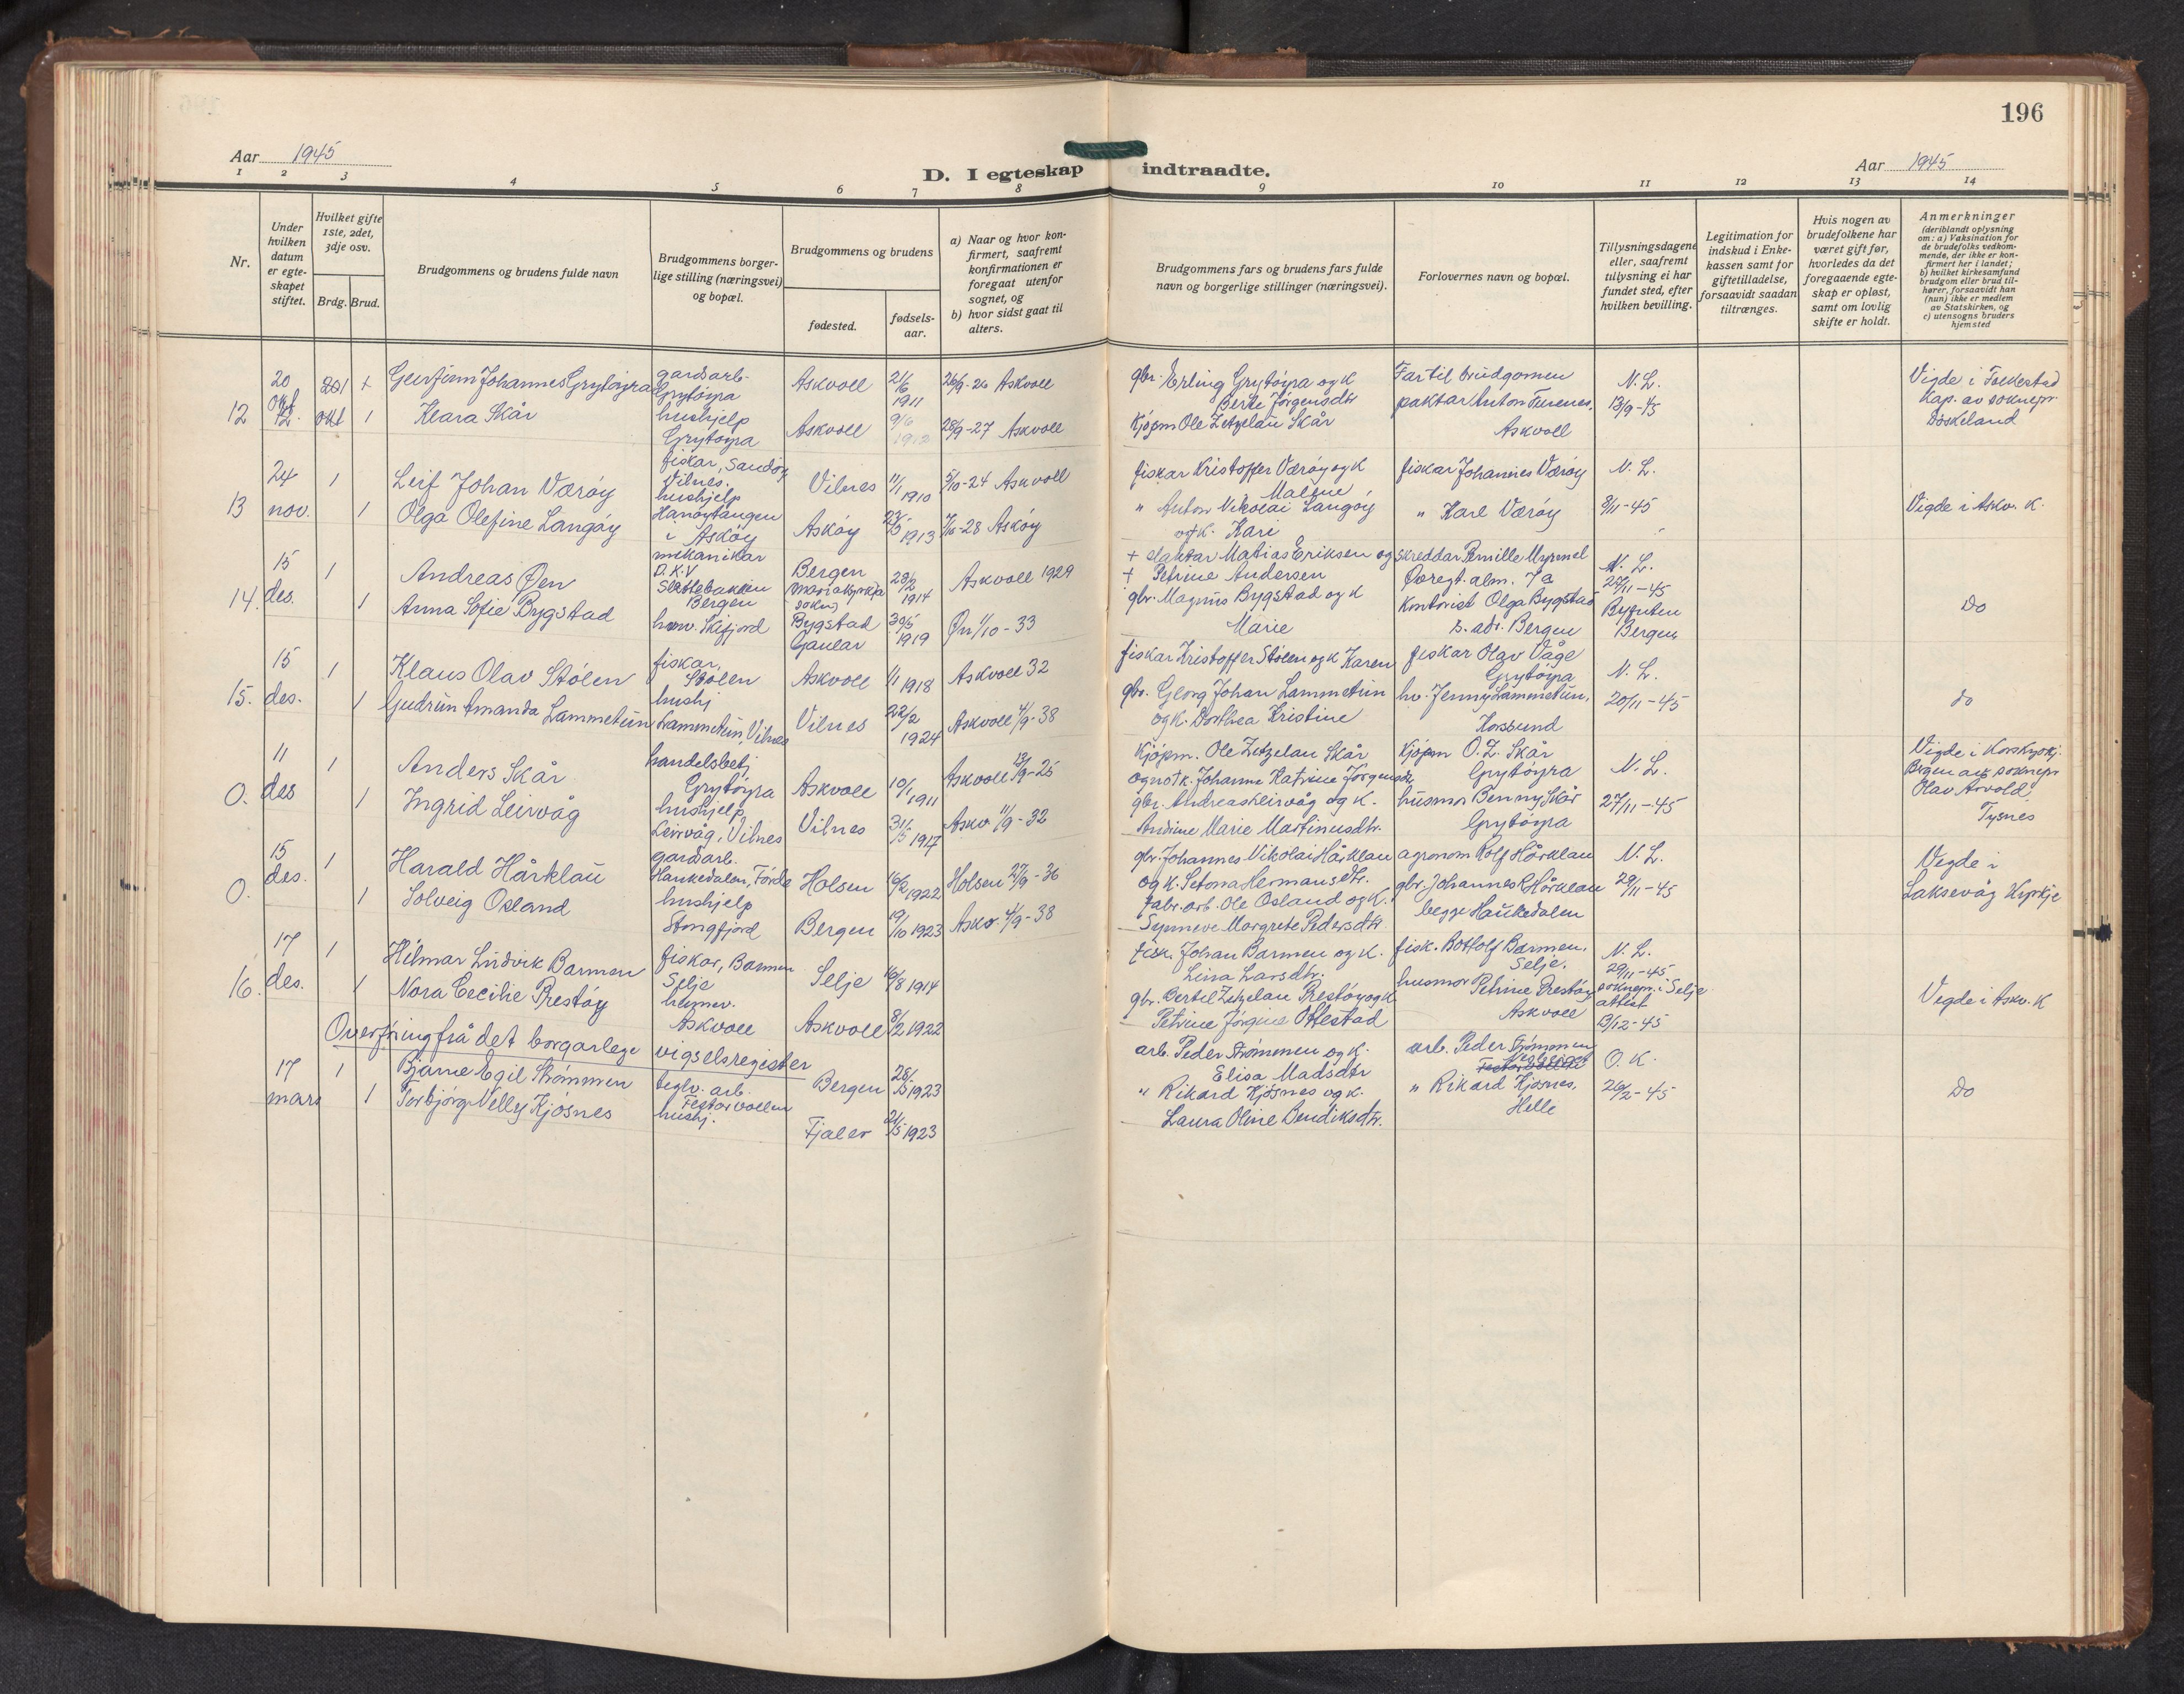 196
Aar 1945
D. I egteskap indtraadte.
Aar 1945
1 2 3 4 5 6 7 8 9 10 11 12 13 14
Nr.
Under hvilken datum er egte- skapet stiftet.
Hvilket gifte 1ste, 2det, 3dje osv.
Brdg. Brud.
Brudgommens og brudens fulde navn
Brudgommens borger- lige stilling (næringsvei) og bopæl.
Brudgommens og brudens
fødested.
fødsels- aar.
a) Naar og hvor kon- firmert, saafremt konfirmationen er foregaat utenfor sognet, og
b) hvor sidst gaat til alters.
Brudgommens fars og brudens fars fulde navn og borgerlige stillinger (næringsvei).
Forlovernes navn og bopæl.
Tillysningsdagene eller, saafremt tillysning ei har fundet sted, efter hvilken bevilling.
Legitimation for indskud i Enke- kassen samt for giftetilladelse, forsaavidt saadan tiltrænges.
Hvis nogen av brudefolkene har været gift før, hvorledes da det foregaaende egte- skap er opløst, samt om lovlig skifte er holdt.
Anmerkninger (deriblandt oplysning om: a) Vaksination for de brudefolks vedkom- mende, der ikke er kon- firmert her i landet; b) hvilket kirkesamfund brudgom eller brud til- hører, forsaavidt han (hun) ikke er medlem av Statskirken, og c) utensogns bruders hjemsted
12 20 okt
Johannes Grytøyra
gardsarb. Grytøyra
Askvoll 21/6 1911
26/9-26 Askvoll
gbr. Erling Grytøyra og k Berte Jørgensdtr
Far til brudgomen
N. L. 13/9-45
Vigde i Folkestad Kap. av soknepr. Døskeland
1 Klara Skår
hushjelp Grytøyra
Askvoll 9/6 1912
28/9-27 Askvoll
Kjøpm Ole Zetzelau Skår
paktar Anton Furenes, Askvoll
13 24 nov.
1 Leif Johan Værøy
fiskar, Sandøy Vilnes.
Vilnes 11/1 1910
5/10-24 Askvoll
fiskar Kristoffer Værøy og k Maline
fiskar Johannes Værøy
N. L. 9/11-45
Vigde i Askv. K.
1 Olga Olefine Langøy
hushjelp Hanøytangen i Askøy
Askøy 1913
7/10-28 Askøy
" Anton Nikolai Langøy og k. Kari
" Karl Værøy
14. 15 des.
1 Andreas Øen
mekanikar D.K.V Slettebakken Bergen
Bergen (Mariakyrkja sokn) 1914
Askvoll 1929
+ slaktar Matias Eriksen og + Petrine Andersen
skreddar Pernille Myrmel Øvregt. alm. 7a
N. L. 27/11-45 Byfuten Bergen
do
1 Anna Sofie Bygstad
Bygstad Gaular 30/5 1919
1/10-33
gbr. Magnus Bygstad og k Marie
kontorist Olga Bygstad s. adr. Bergen
15. 15 des.
1 Klaus Olav Stølen
fiskar, Stølen
Askvoll 1/1 1918
Askvoll 32
fiskar Kristoffer Stølen og k Karen
fiskar Olav Våge Grytøyra
N. L. 20/11-45
do
1 Gudrun Amanda Lammetun
hushj Lammetun, Vilnes
Vilnes 22/2 1924
Askvoll 4/9-38
gbr. Georg Johan Lammetun og k. Dorthea Kristine
hv. Jenny Lammetun, Korssund
O. 11 des
1 Anders Skår
handelsbetj Grytøyra
Askvoll 10/1 1911
Askvoll 13/9-25
Kjøpm. Ole Zetzelau Skår og k. Johanne Katrine Jørgensdtr
Kjøpm O. Z. Skår Grytøyra
N. L. 27/11-45
Vigde i Korskyrkj. Bergen av soknepr Olav Arvold, Tysnes
1 Ingrid Leirvåg
hushjelp, Leirvåg, Vilnes
Vilnes 31/5 1917
Askv. 11/9-32
gbr. Andreas Leirvåg og k. Andrine Marie Martinusdtr.
husmor Benny Skår Grytøyra
O. 15 des.
1 Harald Hårklau
gardsarb. Haukedalen, Førde
Holsen 16/2 1922
Holsen 27/9-36
gbr. Johannes Nikolai Hårklau og k. Setona Hermansdtr.
agronom Rolf Hårklau
N. L. 29/11-45
Vigde i Laksevåg Kyrkje
1 Solveig Osland
hushjelp Stongfjord
Bergen 19/10 1923
Askv. 4/9-38
fabr. arb. Ole Osland og k. Synneve Margrete Pedersdtr
gbr. Johannes R Hårklau begge Haukedalen
16. 17 des.
1 Hilmar Ludvik Barmen
fiskar, Barmen Selje
Selje 16/8 1914
fisk. Johan Barmen og k. Lina Larsdtr.
fisk. Botholf Barmen, Selje.
N. L. 29/11-45 soknepr. i Selje attest 13/12-45
Vigde i Askv. K
1 Nora Cecilie Prestøy
husmor. Askvoll
Askvoll 8/2 1922
gbr. Bertel Zetzelau Prestøy og k Petrine Jørgine Ottestad
husmor Petrine Prestøy Askvoll
Overføring frå det borgarlege vigselsregister
17 mars
1 Bjarne Egil Strømmen
teglv. arb.
Bergen 1923
arb. Peder Strømmen og k. Elisa Madsdtr
arb. Peder Strømmen
O. K. 26/2-45
Do
1 Torbjørg Nelly Kjøsnes
hushj.
Fjaler 21/5 1923
" Rikard Kjøsnes og k. Laura Oline Bendiksdtr.
" Rikard Kjøsnes, Helle